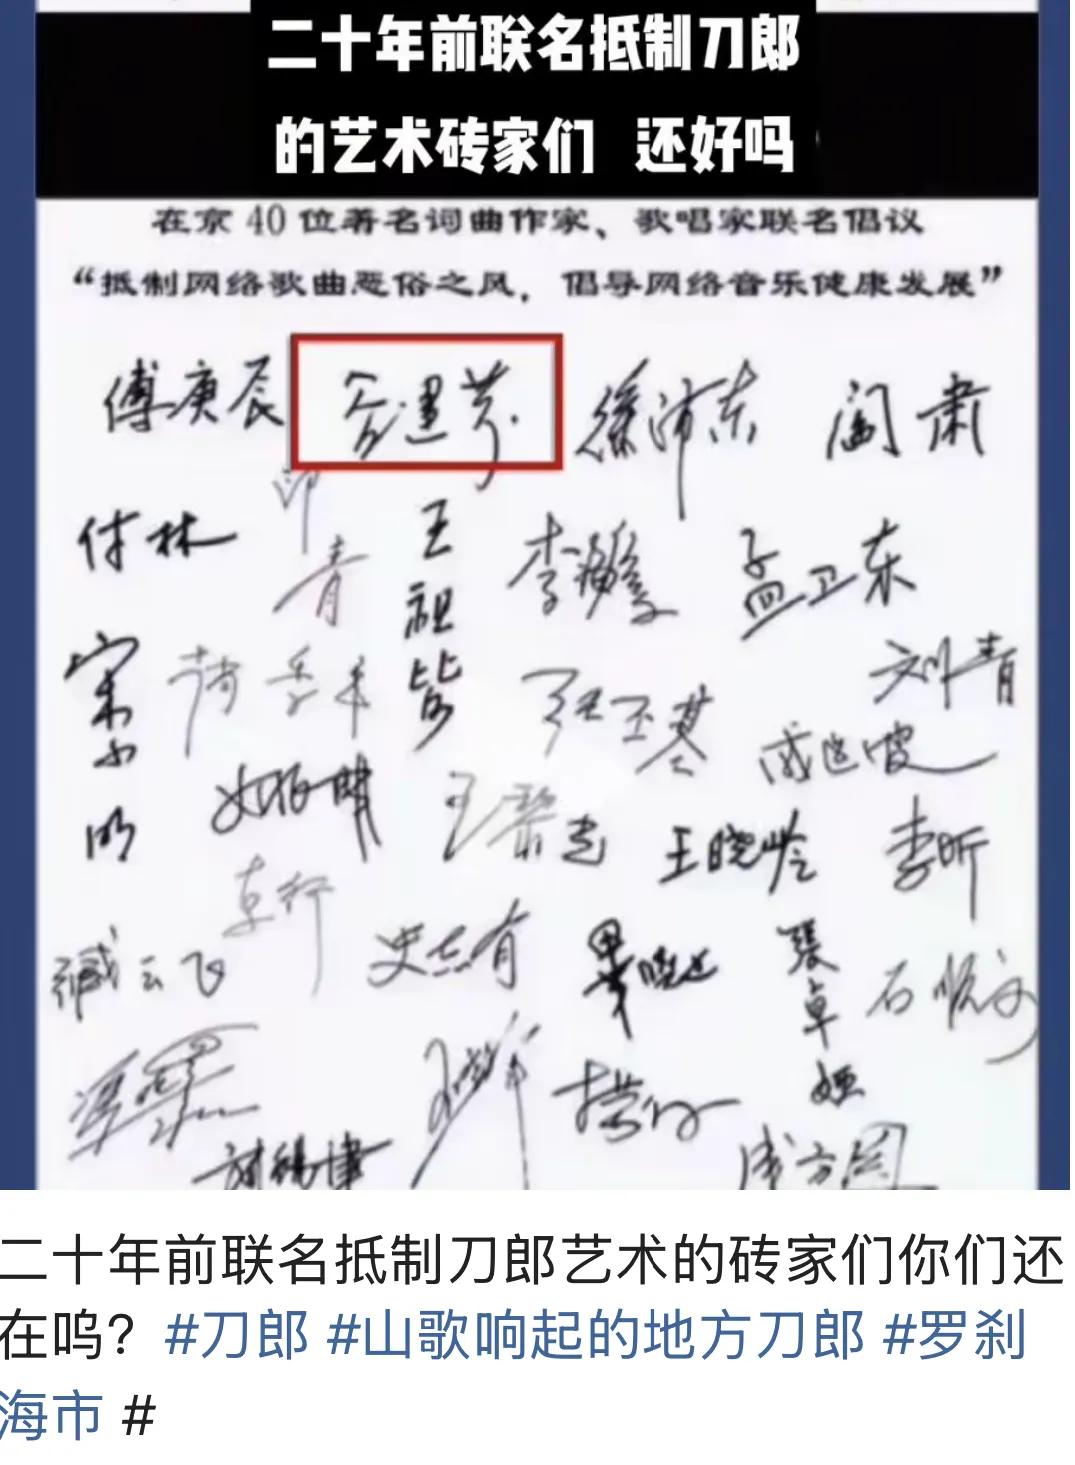 二十年前联名抵制刀郎
的艺术砖家们 还好吗
在京40位著名词曲作家、歌唱家联名倡议
“抵制网络歌曲恶俗之风，倡导网络音乐健康发展”
傅庚辰 谷建芬 徐沛东 阎肃
付林 印青 王祖皆 李海鹰 孟卫东
宋小明 刘青
张丕基 成
王黎光 王晓岭 李昕
臧云飞 京行 史志有 张卓娅 石顺义
成方圆
二十年前联名抵制刀郎艺术的砖家们你们还
在呜？#刀郎 #山歌响起的地方刀郎 #罗刹
海市 #